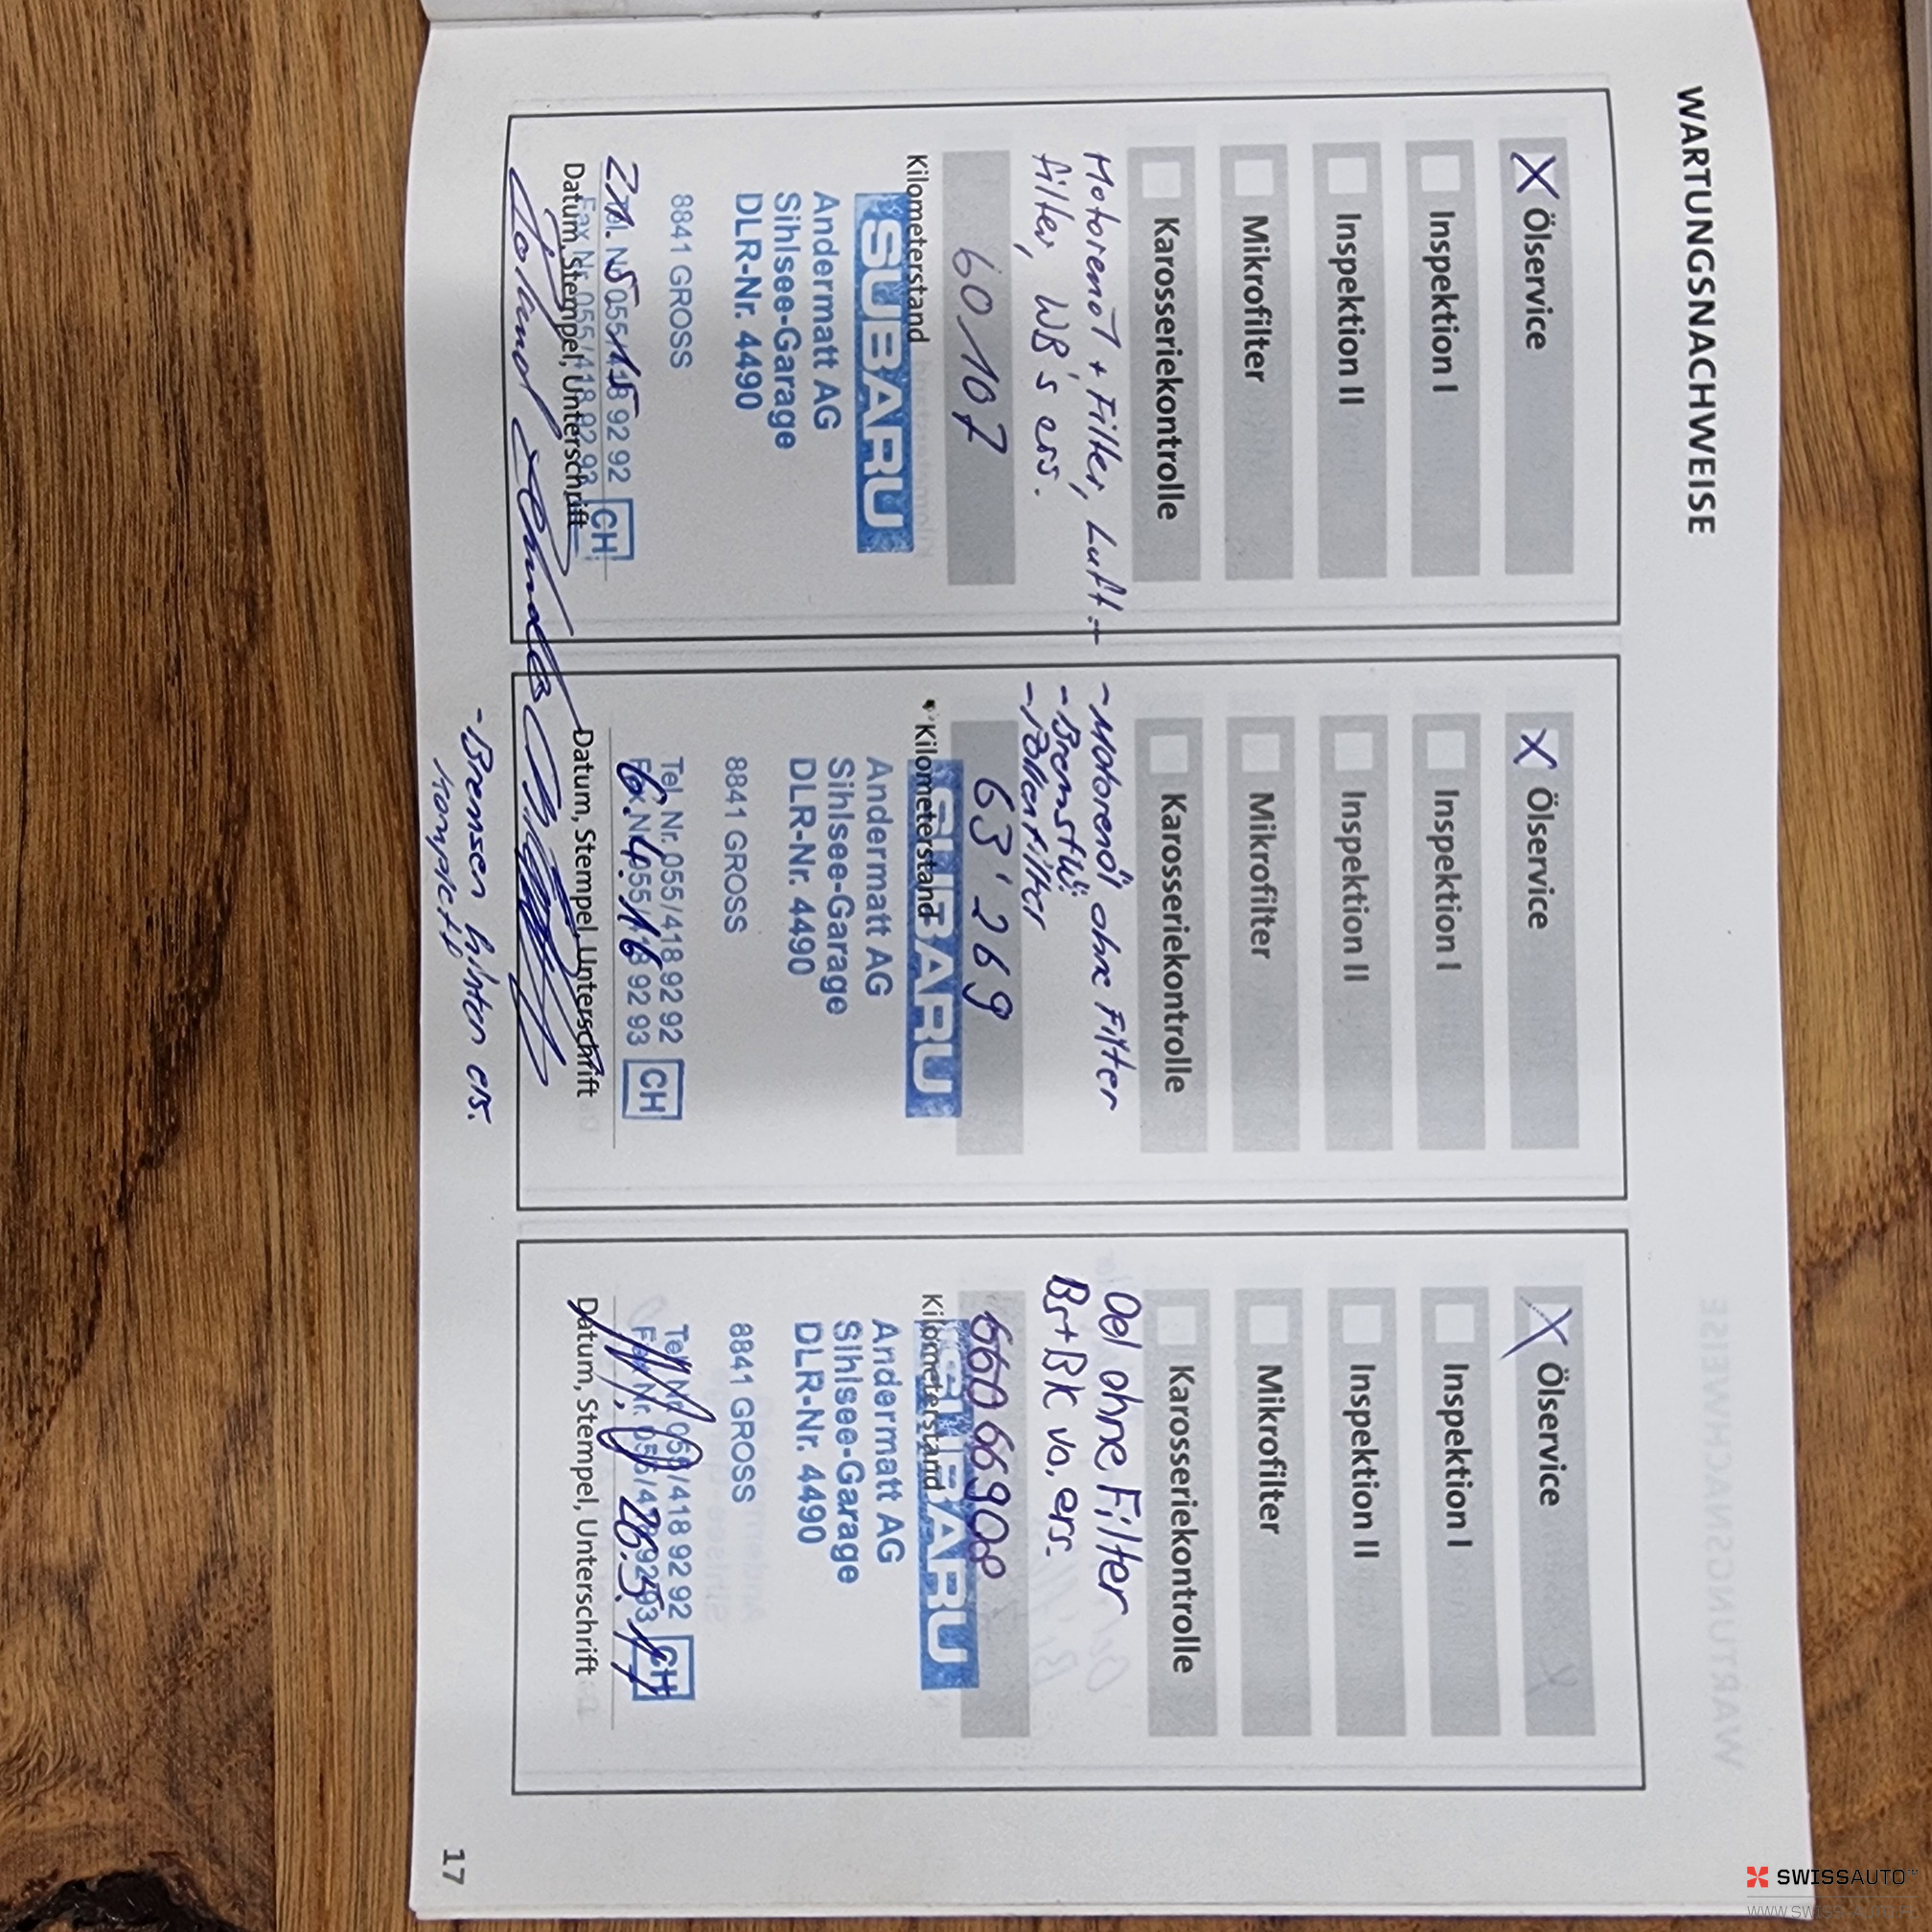 WARTUNGSNACHWEISE
X Ölservice
Inspektion I
Inspektion II
Mikrofilter
Karosseriekontrolle
Motorenöl + Filter, Luft-
filter, WB's ers.
60107
Kilometerstand
SUBARU
Andermatt AG
Sihlsee-Garage
DLR-Nr. 4490
8841 GROSS
Tel. Nr. 055/418 92 92
Fax Nr. 055/418 92 93
CH
21. 5. 15
Datum, Stempel, Unterschrift
X Ölservice
Inspektion I
Inspektion II
Mikrofilter
Karosseriekontrolle
-Motorenöl ohne Filter
-Bremsflü.
-Pollenfilter
63'269
Kilometerstand
SUBARU
Andermatt AG
Sihlsee-Garage
DLR-Nr. 4490
8841 GROSS
Tel. Nr. 055/418 92 92
Fax Nr. 055/418 92 93
CH
6.4.16
Datum, Stempel, Unterschrift
-Bremsen hinten ers.
komplett
X Ölservice
Inspektion I
Inspektion II
Mikrofilter
Karosseriekontrolle
Oel ohne Filter
BS+BK vo. ers.
66908
Kilometerstand
SUBARU
Andermatt AG
Sihlsee-Garage
DLR-Nr. 4490
8841 GROSS
Tel. Nr. 055/418 92 92
Fax Nr. 055/418 92 93
CH
26.5.17
Datum, Stempel, Unterschrift
17
SWISSAUTO